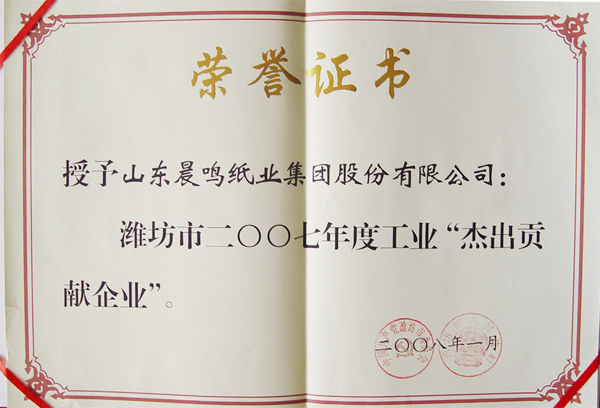 荣誉证书
授予山东晨鸣纸业集团股份有限公司：
潍坊市二〇〇七年度工业“杰出贡
献企业”。
二〇〇八年一月